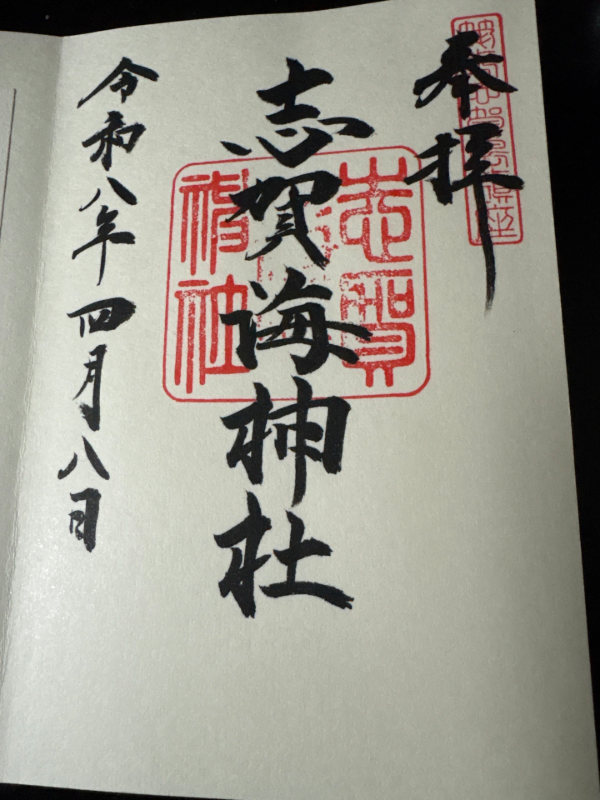 奉拝
志賀海神社
令和八年四月八日
志賀
神社